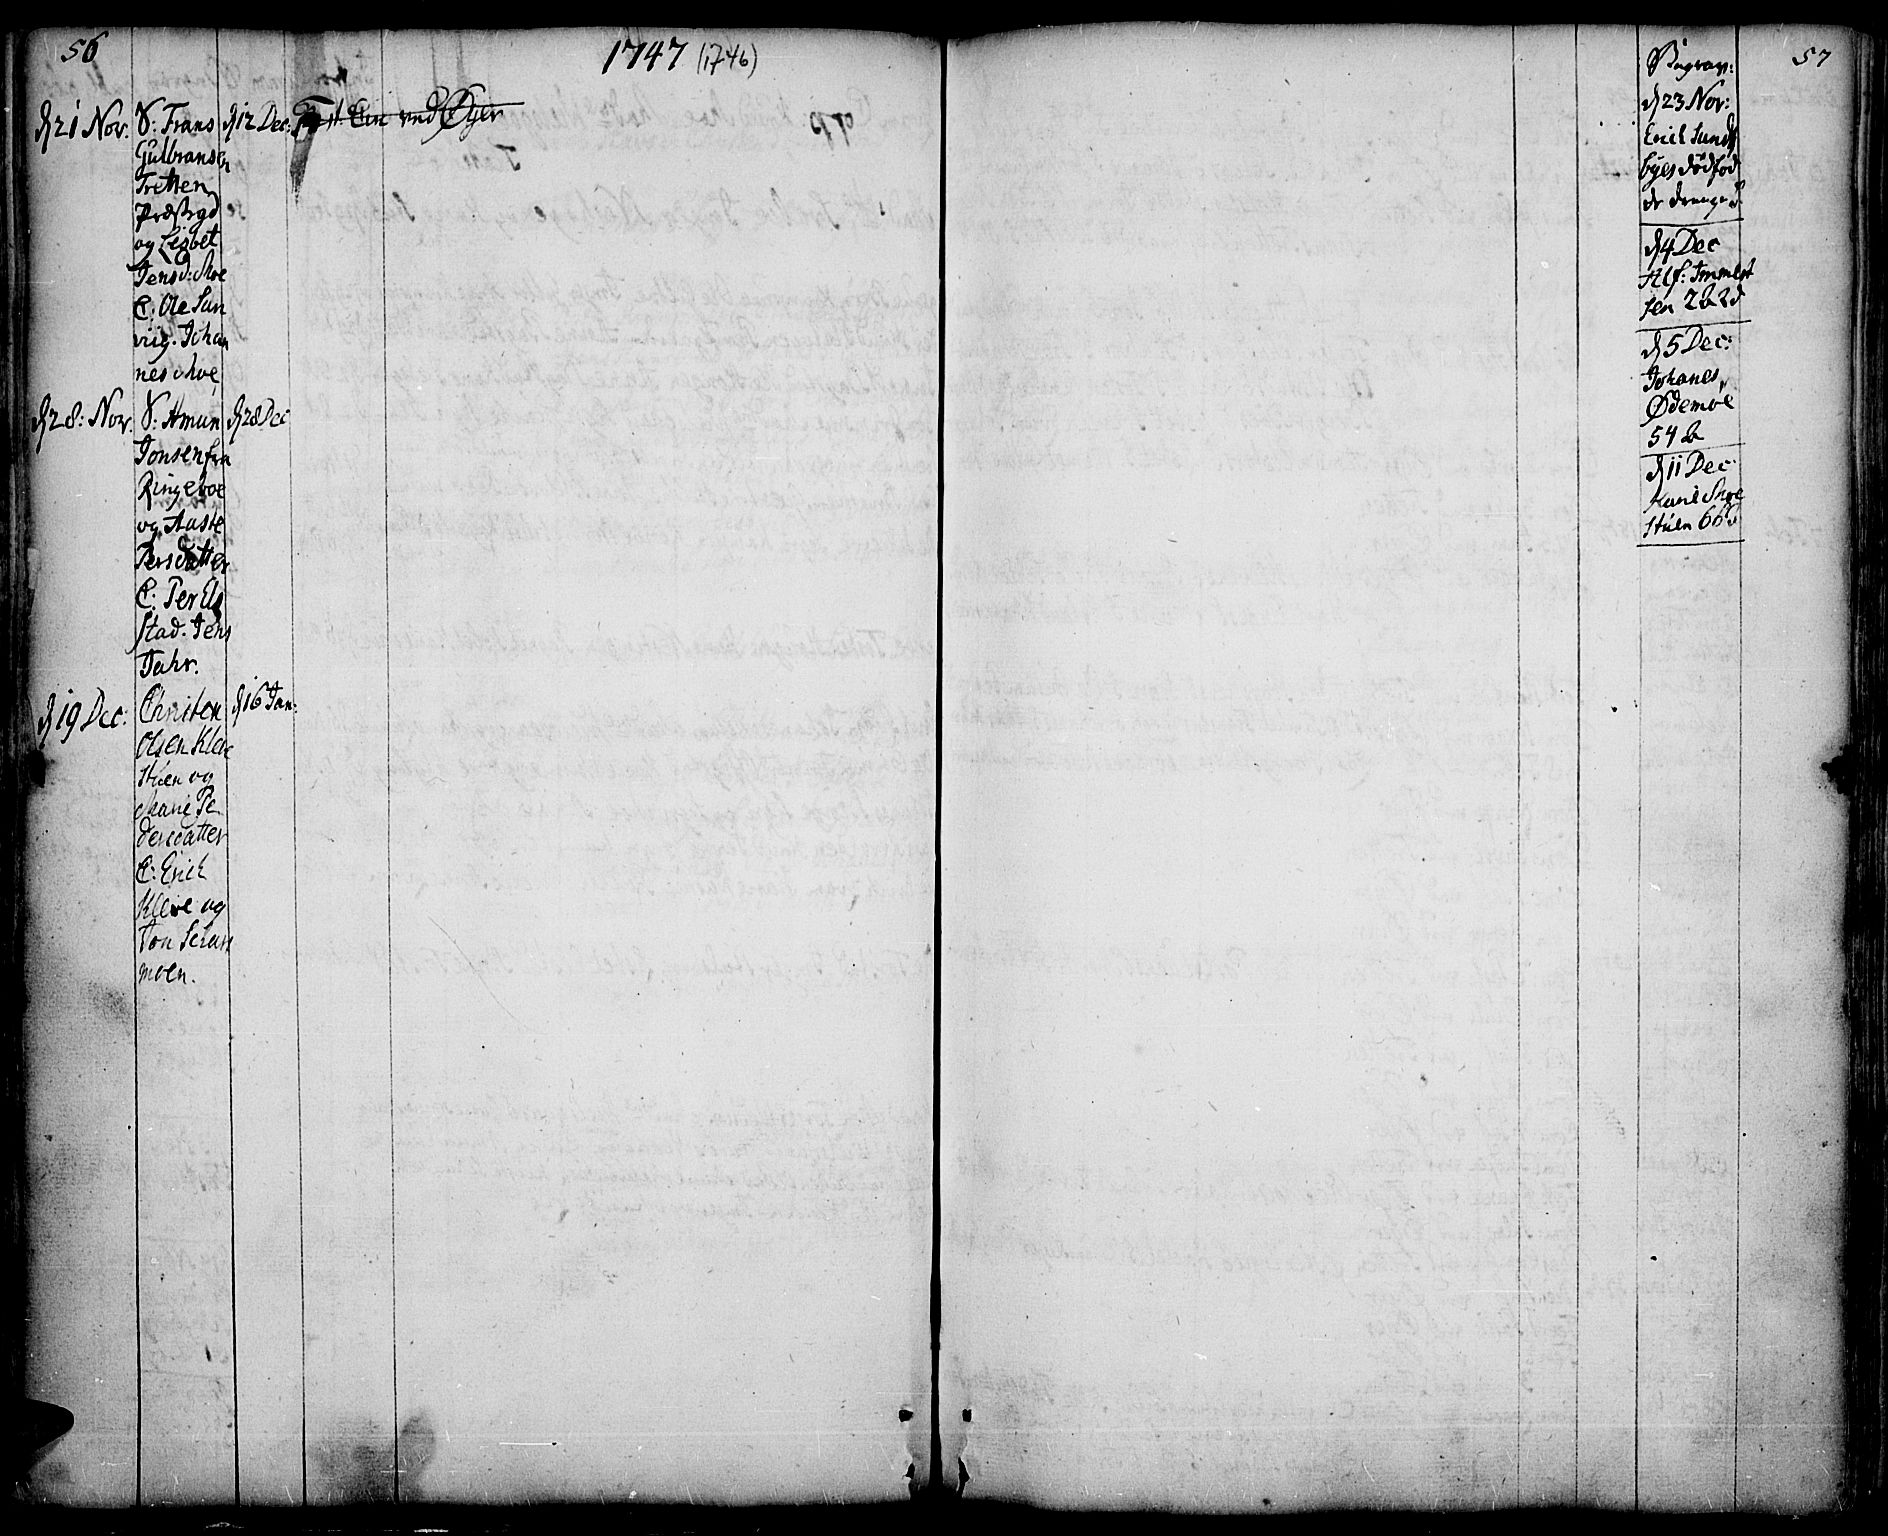 56
1747 (1746)
d 21 Nov:
S: Frans
Gulbransen
Tretten
Præstegd
og Lisbet
Jensd: Moe
C: Ole Lun
vig. Johan
nes Moe
d 12 Dec:
Øyer
d 28: Nov
S: Amun
Jonsen fra
Ringeboe
og Aaste
Persdatter
C: Per El
stad. Jens
Tahr.
d 28 Dec
d 19 Dec:
Christen
Olsen Kleve
stuen og
Marie Pe
dersdatter
C: Erich
Kleve og
Jon
moen.
d 16 Jan:
57
Begrav:
d 23 Nov:
Erich Sund
byes dödföd
de drenge
d 4 Dec
sen
d 5 Dec:
Johanes
Ødemoe
54
d 11 Dec
Kari Moe
stuen 66